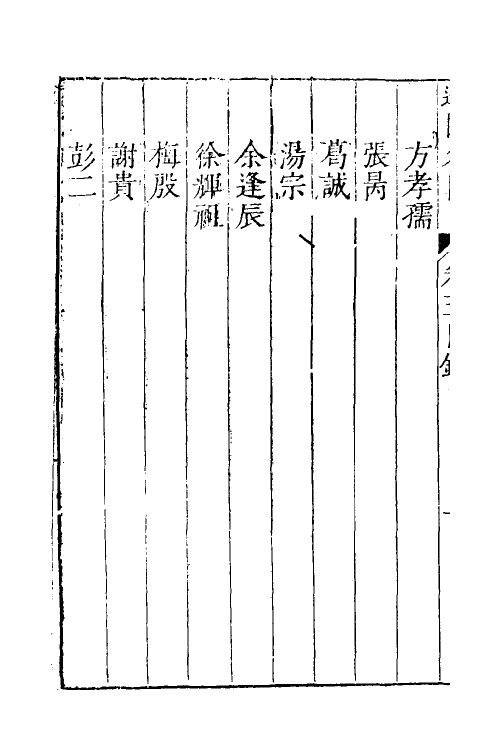 方孝孺
張昺
葛誠
湯宗
余逢辰
徐輝祖
梅殷
謝貴
彭二